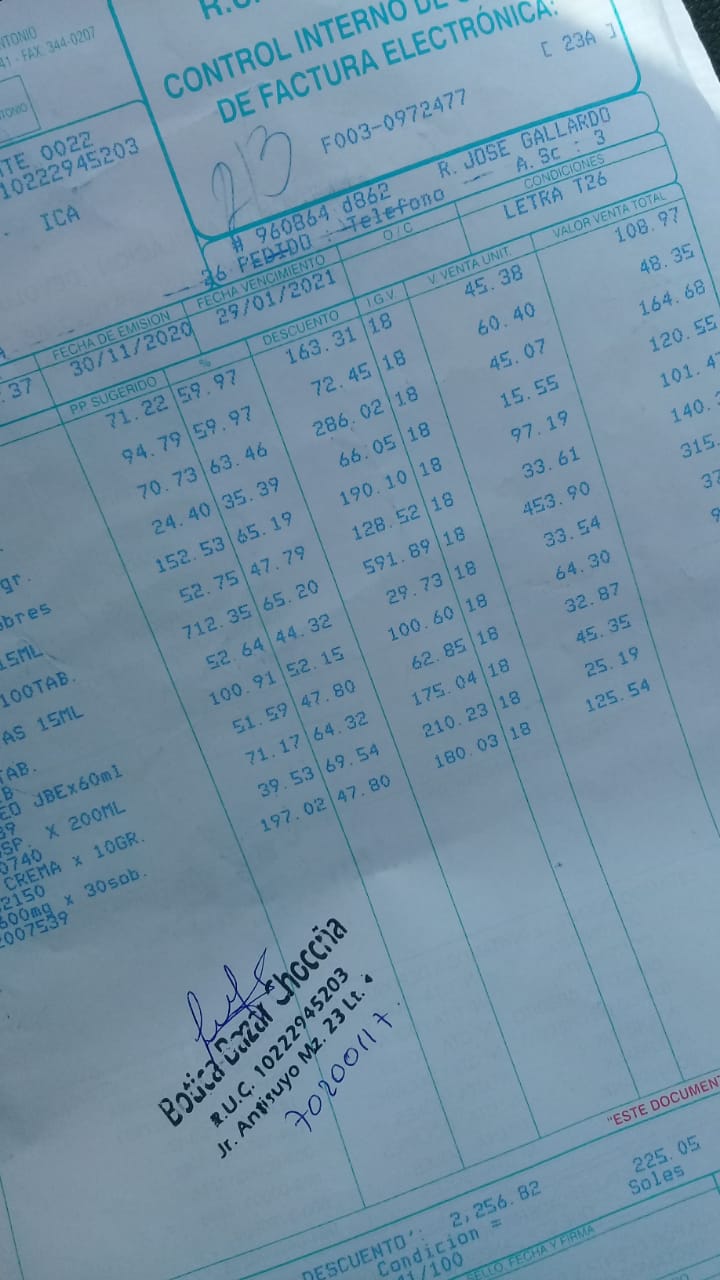 R.U.
CONTROL INTERNO DE
DE FACTURA ELECTRÓNICA:
[ 23A ]
F003-0972477
213
ANTONIO
41 - FAX. 344-0207
0022
10222945203
ICA
# 960864 d862 R. JOSE GALLARDO
26 PEDIDO : Telefono A. Sc : 3
FECHA DE EMISION FECHA VENCIMIENTO O / C CONDICIONES
30/11/2020 29/01/2021 LETRA T26
.37
PP SUGERIDO % DESCUENTO I.G.V. V. VENTA UNIT. VALOR VENTA TOTAL
71.22 59.97 163.31 18 45.38 108.97
94.79 59.97 72.45 18 60.40 48.35
70.73 63.46 286.02 18 45.07 164.68
24.40 35.39 66.05 18 15.55 120.55
152.53 65.19 190.10 18 97.19 101.4
52.75 47.79 128.52 18 33.61 140.
712.35 65.20 591.89 18 453.90 315.
52.64 44.32 29.73 18 33.54 37
100.91 52.15 100.60 18 64.30
51.59 47.80 62.85 18 32.87
71.17 64.32 175.04 18 45.35
39.53 69.54 210.23 18 25.19
197.02 47.80 180.03 18 125.54
gr.
obres
15ML
100TAB.
AS 15ML
TAB.
JBEx60ml
SP. X 200ML
0740
CREMA x 10GR.
2150
600mg x 30sob.
2007539
Botica Bazar Choccña
R.U.C. 10222945203
Jr. Antisuyo Mz. 23 Lt. 4
70200117
"ESTE DOCUMEN
DESCUENTO : 2,256.82 225.05
Condicion = Soles
41/100
SELLO, FECHA Y FIRMA